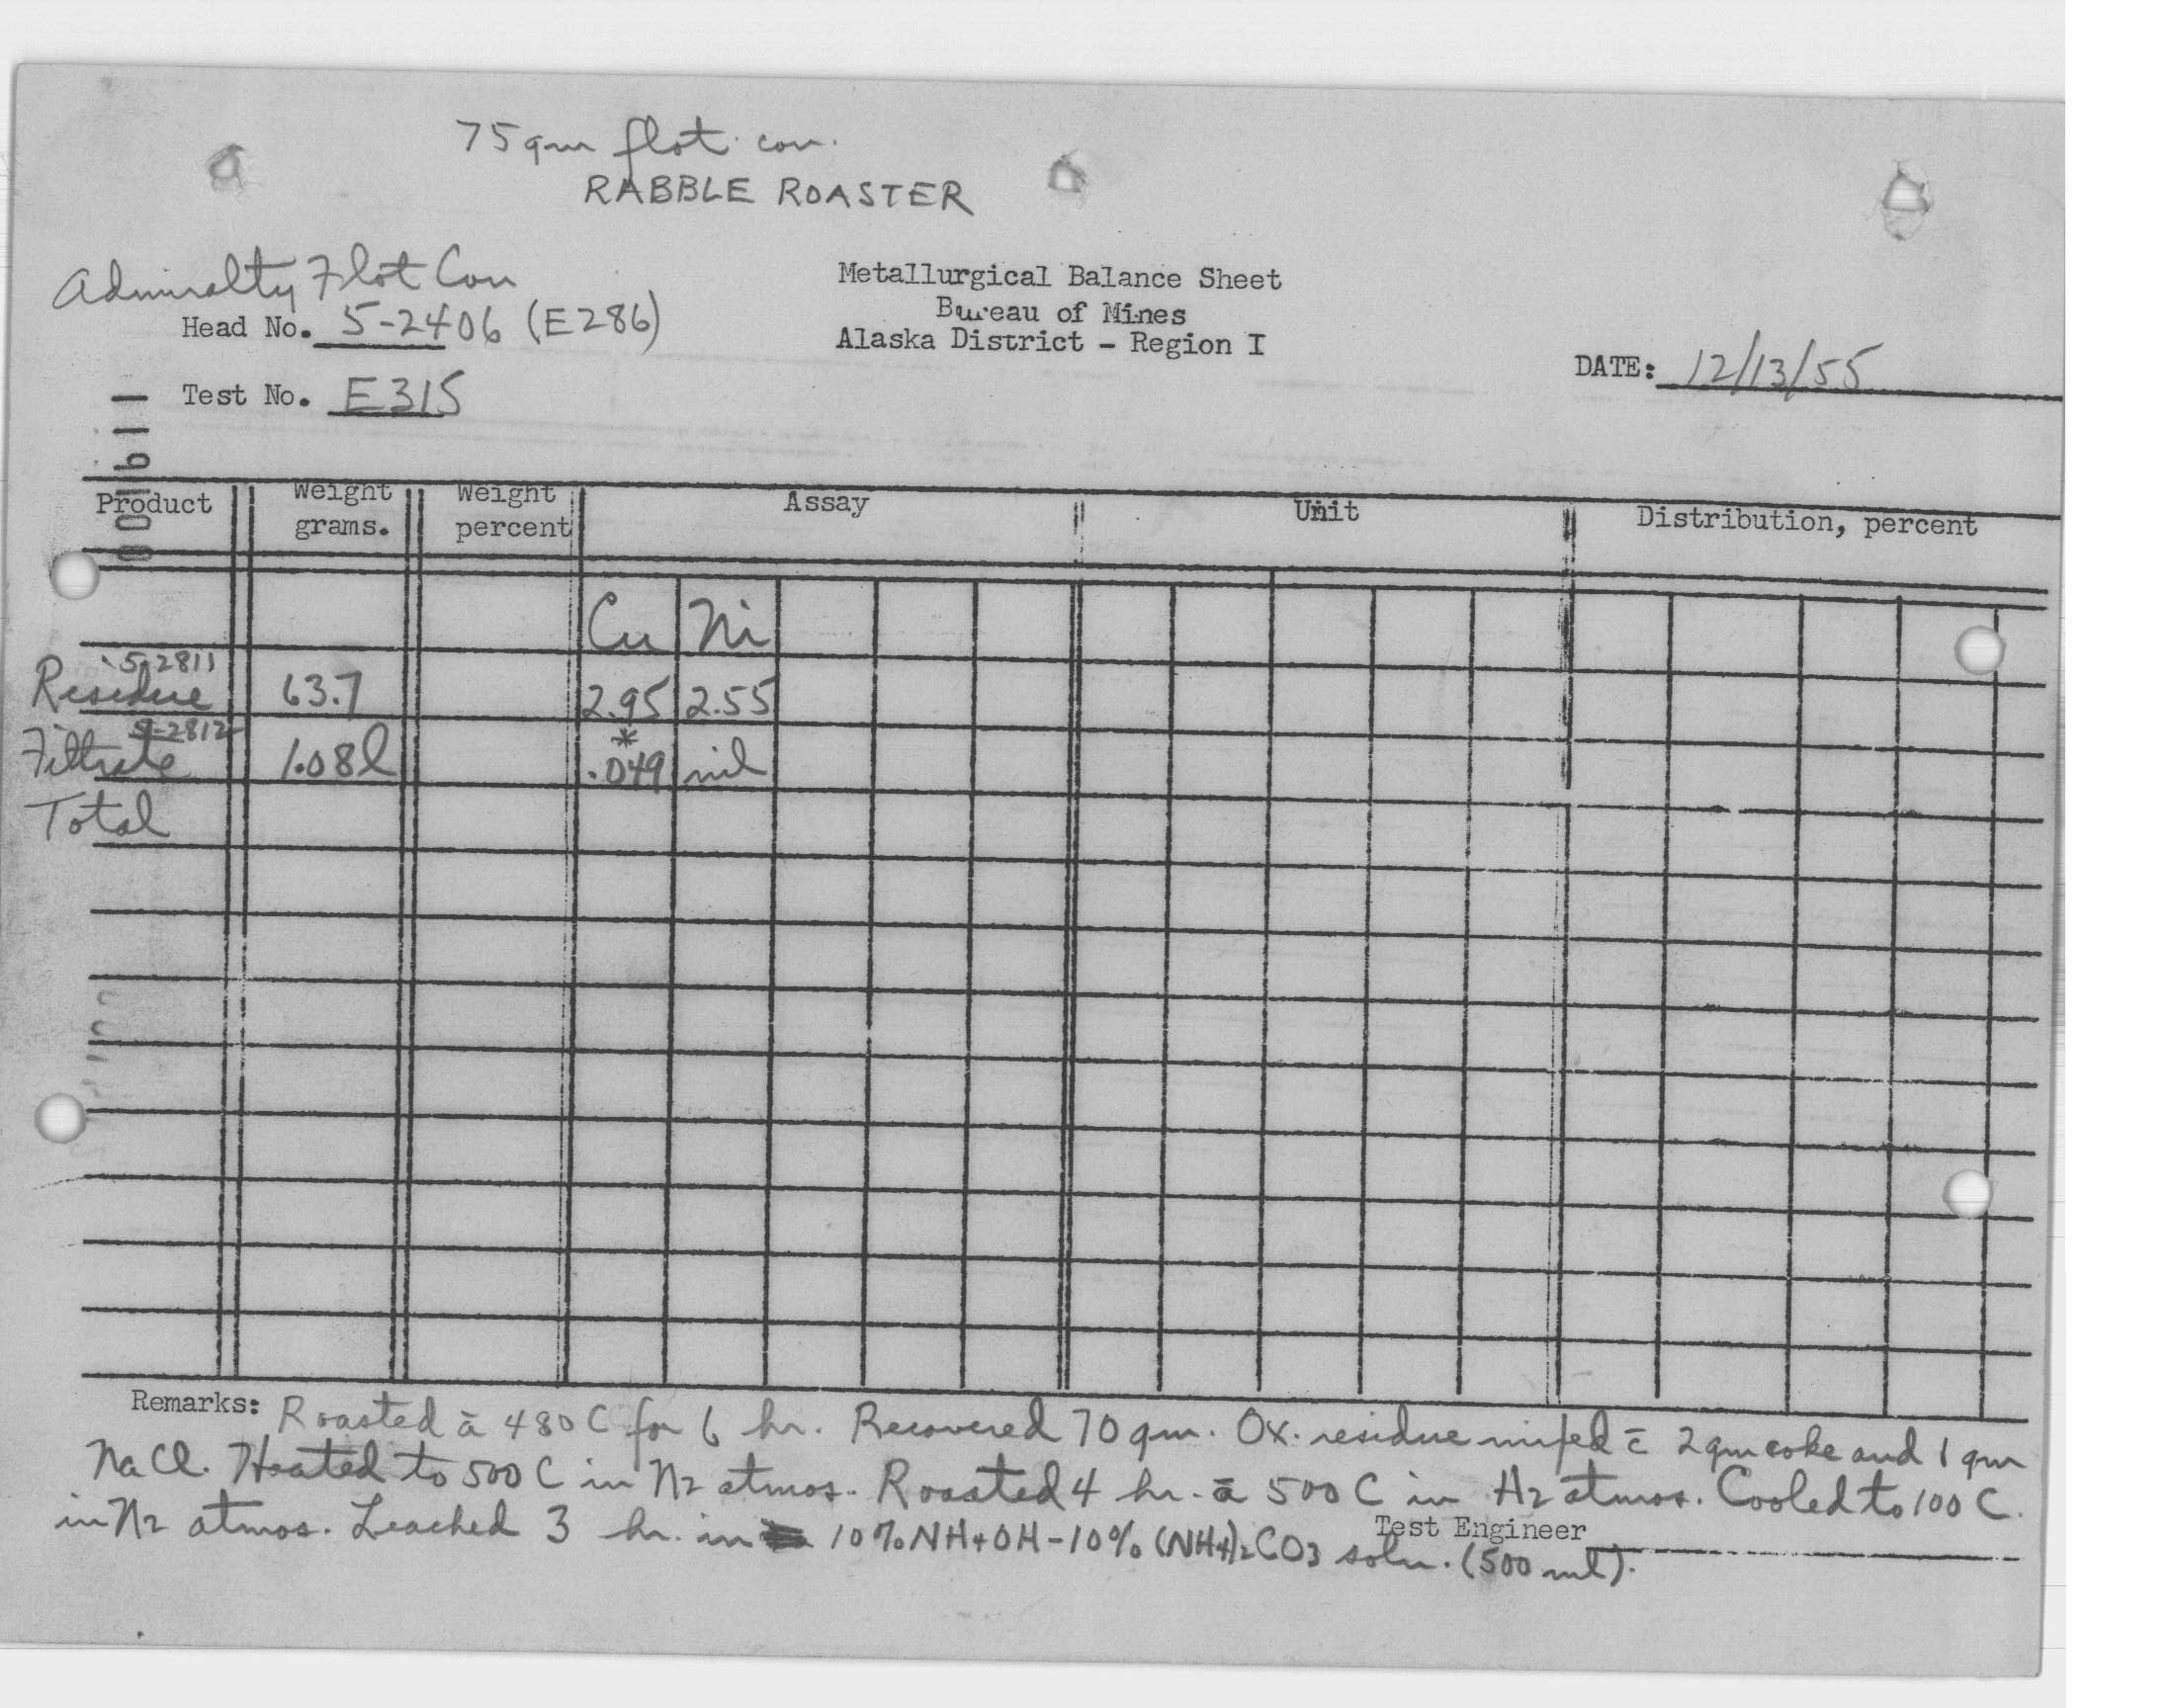 75 gm flot. con.
RABBLE ROASTER
Admiralty Flot Con
Metallurgical Balance Sheet
Bureau of Mines
Alaska District - Region I
Head No. 5-2406 (E286)
DATE: 12/13/55
Test No. E315
Product Weight grams. Weight percent Assay Unit Distribution, percent
Cu Ni
5-2811
Residue 63.7 2.95 2.55
5-2812 *
Filtrate 1.08l .049 nil
Total
Remarks: Roasted ā 480 C for 6 hr. Recovered 70 gm. Ox. residue mixed c̄ 2 gm coke and 1 gm
NaCl. Heated to 500 C in N2 atmos. Roasted 4 hr. ā 500 C in H2 atmos. Cooled to 100 C.
in N2 atmos. Leached 3 hr. in 10% NH4OH-10% (NH4)2CO3 soln. (500 ml).
Test Engineer